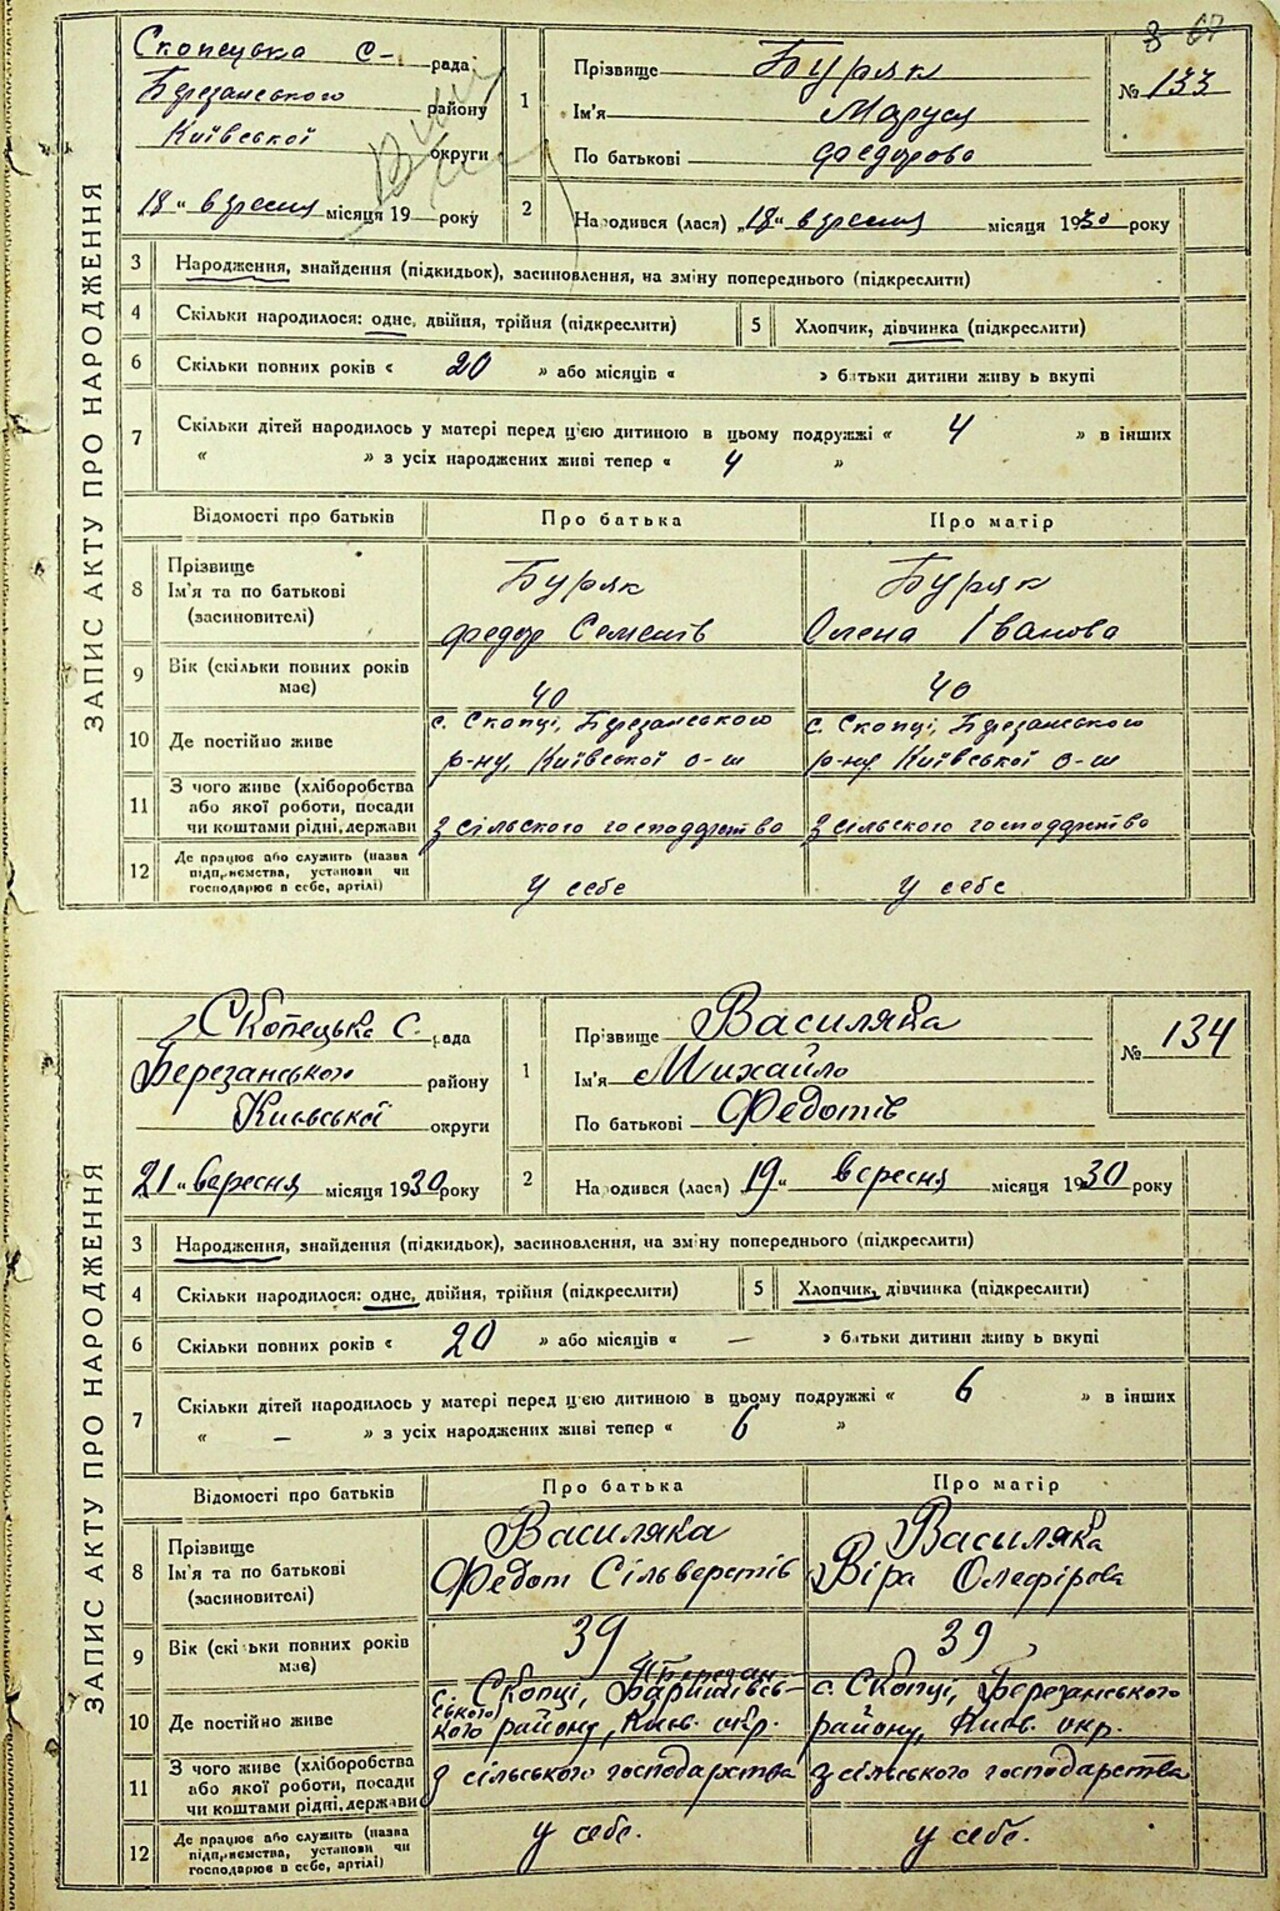 67
ЗАПИС АКТУ ПРО НАРОДЖЕННЯ
Скопецька с- рада
Березанського району
Київської округи
18 " вересня місяця 19 року
1 Прізвище Буряк
Ім'я Маруся
По батькові Федорова
№ 133
2 Народився (лася) „18" вересня місяця 1930 року
3 Народження, знайдення (підкидьок), засиновлення, на зміну попереднього (підкреслити)
4 Скільки народилося: одне, двійня, трійня (підкреслити) 5 Хлопчик, дівчинка (підкреслити)
6 Скільки повних років « 20 » або місяців « » батьки дитини живуть вкупі
7 Скільки дітей народилось у матері перед ц'єю дитиною в цьому подружжі « 4 » в інших
« » з усіх народжених живі тепер « 4 »
Відомості про батьків Про батька Про матір
8 Прізвище
Ім'я та по батькові
(засиновителі)
Буряк
Федор Семенів
Буряк
Олена Іванова
9 Вік (скільки повних років
має)
40
40
10 Де постійно живе
с. Скопці, Березанського
р-ну, Київської о-ги
с. Скопці, Березанського
р-ну Київської о-ги
11 З чого живе (хліборобства
або якої роботи, посади
чи коштами рідні, держави
з сільского господарство
з сільского господарство
12 Де працює або служить (назва
підприємства, установи чи
господарює в себе, артілі)
у себе
у себе
ЗАПИС АКТУ ПРО НАРОДЖЕННЯ
Скопецька С. рада
Березанського району
Києвської округи
21 " вересня місяця 1930 року
1 Прізвище Василяка
Ім'я Михайло
По батькові Федотів
№ 134
2 Народився (лася) „19" вересня місяця 1930 року
3 Народження, знайдення (підкидьок), засиновлення, на зміну попереднього (підкреслити)
4 Скільки народилося: одне, двійня, трійня (підкреслити) 5 Хлопчик, дівчинка (підкреслити)
6 Скільки повних років « 20 » або місяців « — » батьки дитини живуть вкупі
7 Скільки дітей народилось у матері перед ц'єю дитиною в цьому подружжі « 6 » в інших
« — » з усіх народжених живі тепер « 6 »
Відомості про батьків Про батька Про матір
8 Прізвище
Ім'я та по батькові
(засиновителі)
Василяка
Федот Сільверстів
Василяка
Віра Олефірова
9 Вік (скільки повних років
має)
39
39
10 Де постійно живе
Березан-
с. Скопці, Баришівсь-
ського
кого району, Києв. окр.
с. Скопці, Березанського
району, Києв. окр.
11 З чого живе (хліборобства
або якої роботи, посади
чи коштами рідні, держави
З сільського господарства
З сільського господарства
12 Де працює або служить (назва
підприємства, установи чи
господарює в себе, артілі)
у себе.
у себе.